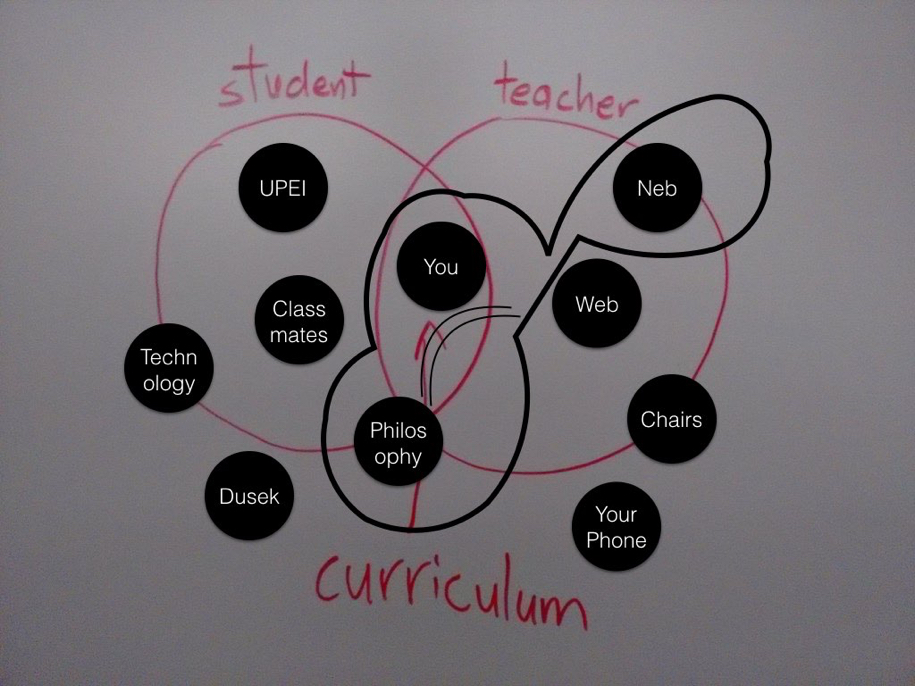 student
teacher
UPEI
Neb
You
Web
Class
mates
Techn
ology
Chairs
Philos
ophy
Dusek
Your
Phone
curriculum